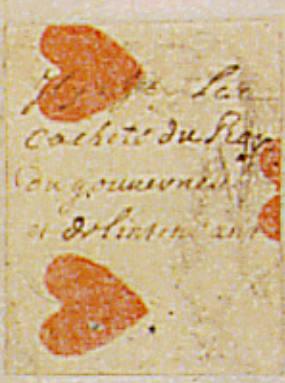 cachets du Roy
du gouverneur
et de lintendant